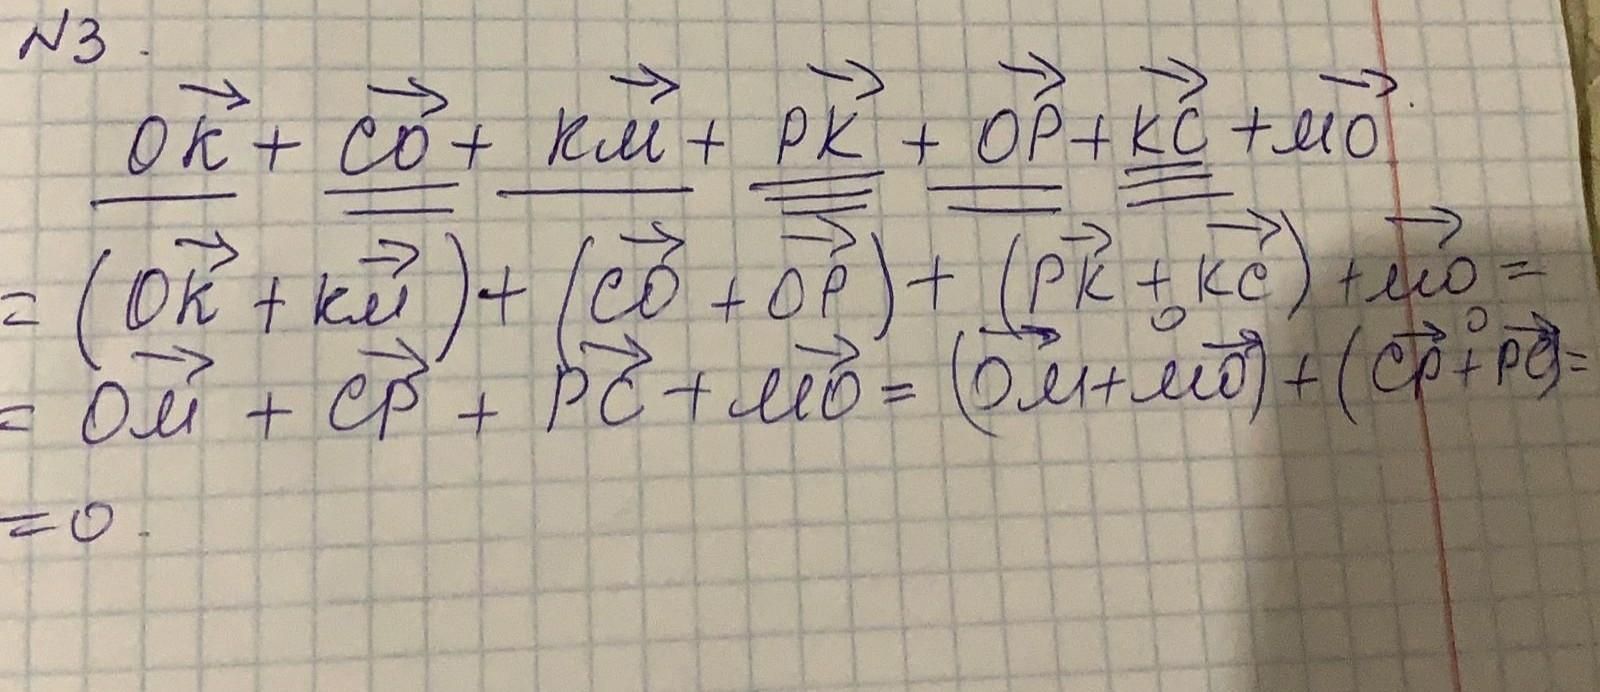 №3.
OK⃗ + CO⃗ + KM⃗ + PK⃗ + OP⃗ + KC⃗ + MO⃗
= (OK⃗ + KM⃗) + (CO⃗ + OP⃗) + (PK⃗ + KC⃗) + MO⃗ =
0 0
= OM⃗ + CP⃗ + PC⃗ + MO⃗ = (OM⃗ + MO⃗) + (CP⃗ + PC⃗) =
= 0.